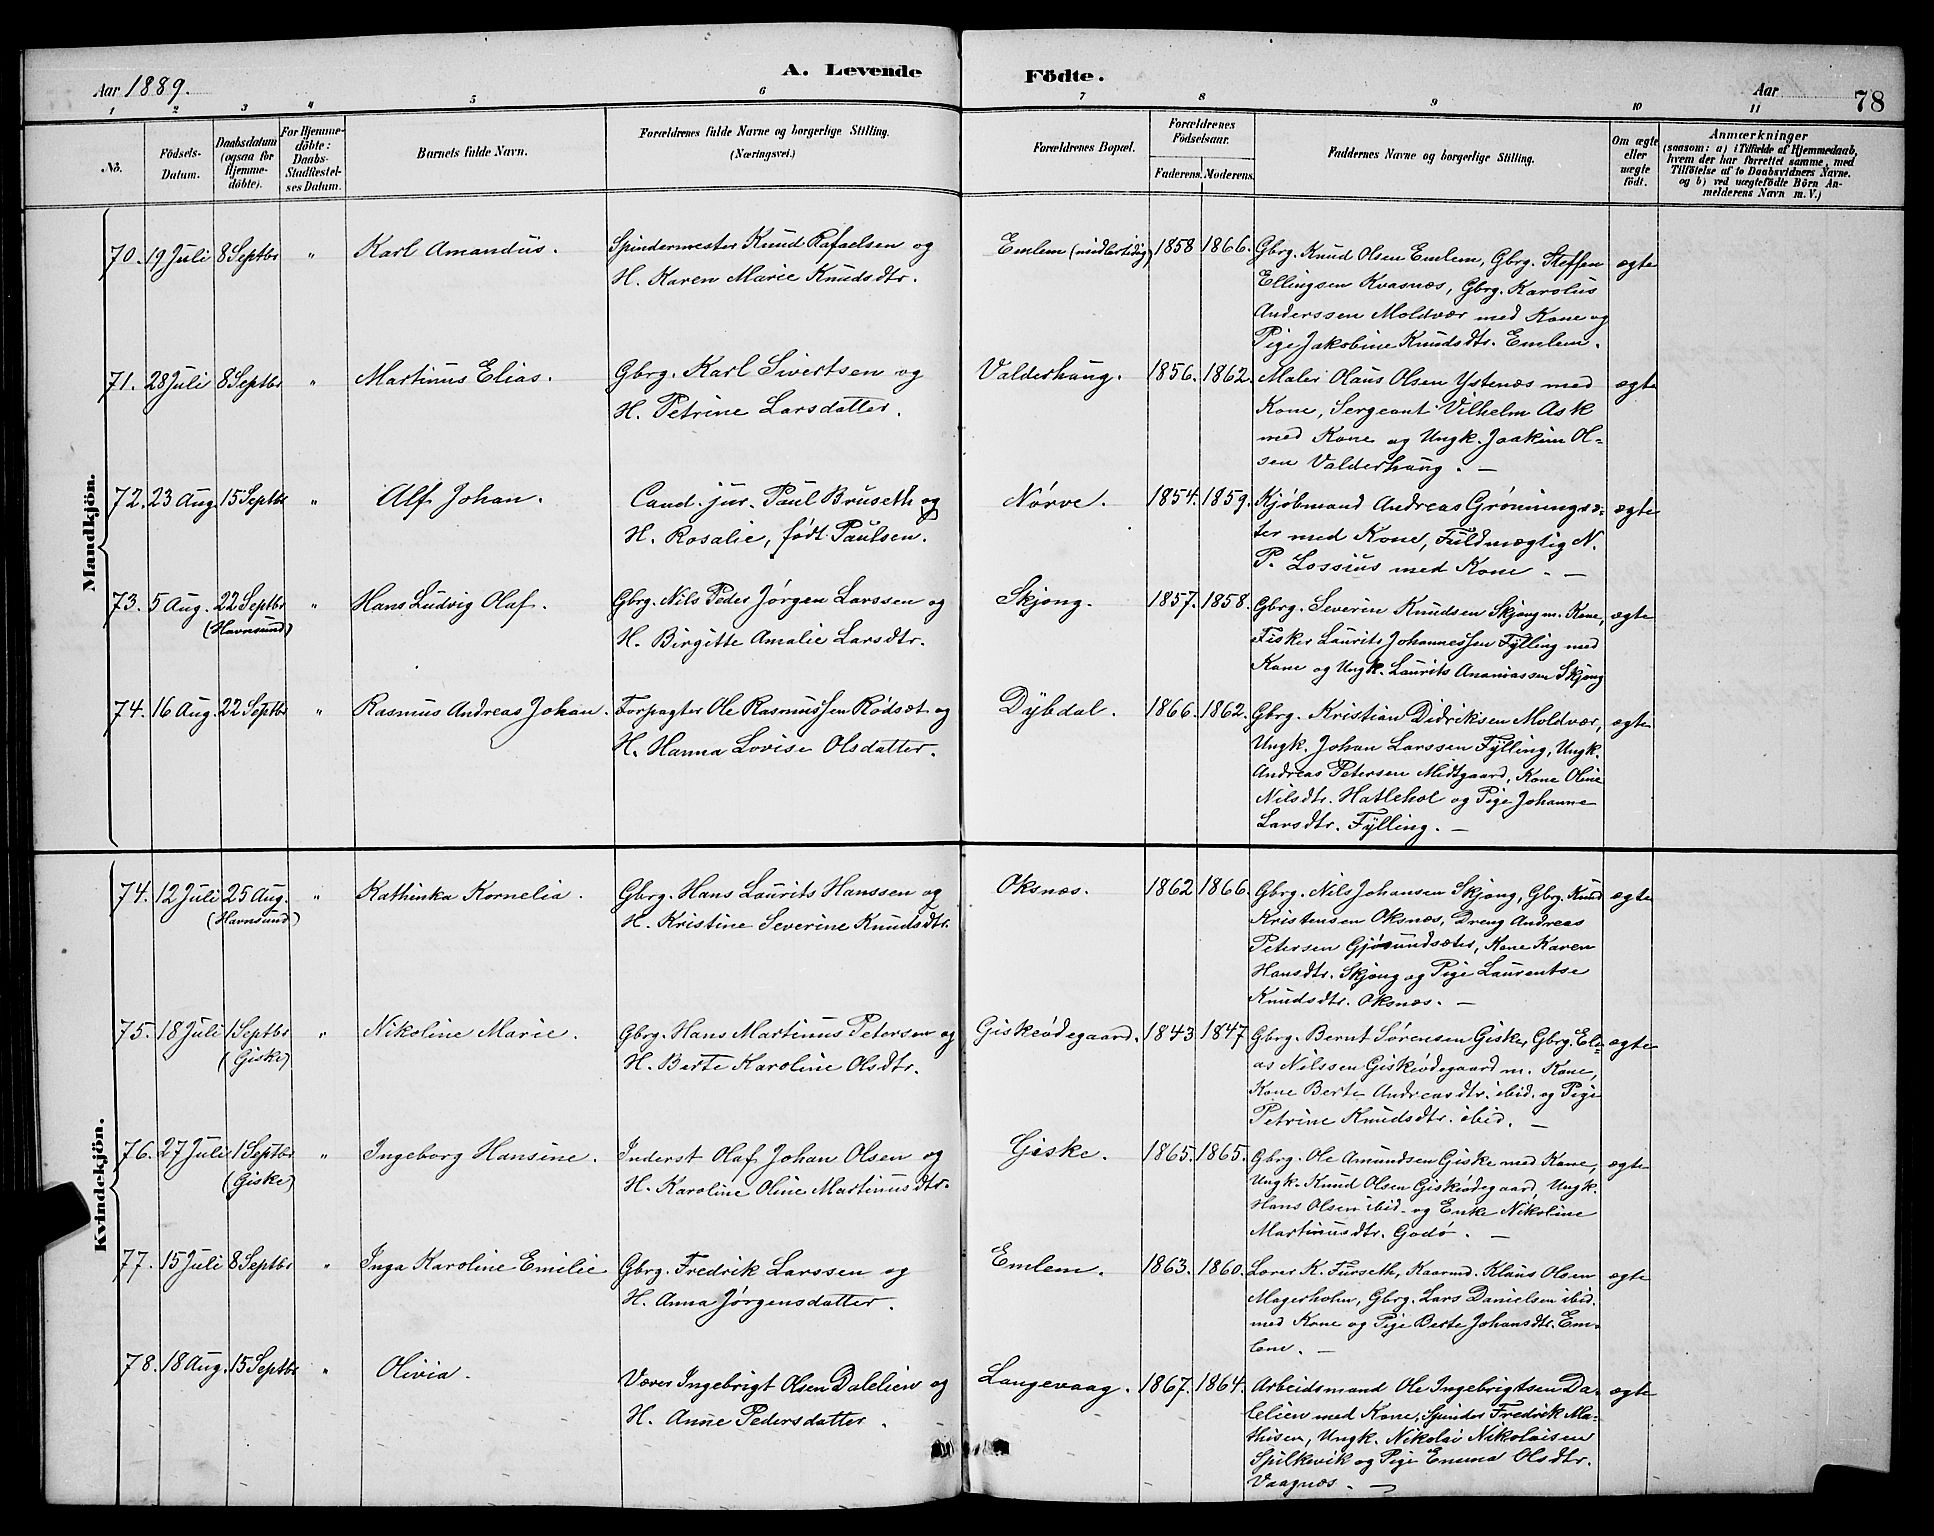 Aar 1889.
A. Levende Födte.
Aar
78
1 2 3 4 5 6 7 8 9 10 11
No.
Födsels-Datum.
Daabsdatum (ogsaa for Hjemme-döbte).
For Hjemme-döbte: Daabs-Stadfæstel-ses Datum.
Barnets fulde Navn.
Forældrenes fulde Navne og borgerlige Stilling. (Næringsvei.)
Forældrenes Bopæl.
Forældrenes Födselsaar.
Faderens. Moderens.
Faddernes Navne og borgerlige Stilling.
Om ægte eller uægte födt.
Anmærkninger
(saasom: a) i Tilfælde af Hjemmedaab,
hvem der har forrettet samme, med
Tilföielse af to Daabsvidners Navne.
og b) ved uægtefödte Börn An-
melderens Navn m. V.)
Mandkjön.
70. 19 Juli 8 Septbr " Karl Amandus. Spindermester Knud Rafaelsen og
H. Karen Marie Knudsdtr.
Emlem (midlertidig) 1858 1866. Gbrg. Knud Olsen Emlem, Gbrg. Steffen ægte
Ellingsen Kvasnæs, Gbrg. Karolus
Anderssen Moldvær med Kone og
Pige Jakobine Knudsdtr. Emlem.
71. 28 Juli 8 Septbr " Martinus Elias. Gbrg. Karl Sivertsen og
H. Petrine Larsdatter.
Valderhaug. 1856. 1862. Maler Olaus Olsen Ystenæs med ægte
Kone, Sergeant Vilhelm Ask
med Kone og Ungk. Joakim Ol-
sen Valderhaug. —
72. 23 Aug. 15 Septbr " Alf Johan. Cand. jur. Paul Bruseth og
H. Rosalie, født Paulsen.
Nørve. 1854. 1859. Kjøbmand Andreas Grønningsæ- ægte
ter med Kone, Fuldmægtig N.
P. Lossius med Kone. —
73. 5 Aug. 22 Septbr (Havnsund) " Hans Ludvig Olaf. Gbrg. Nils Peder Jørgen Larssen og
H. Birgitte Amalie Larsdtr.
Skjong. 1857. 1858. Gbrg. Severin Knudsen Skjong m. Kone, ægte
Fisker Laurits Johannessen Fylling med
Kone og Ungk. Laurits Ananiassen Skjong
74. 16 Aug. 22 Septbr " Rasmus Andreas Johan. Forpagter Ole Rasmussen Rødsæt og
H. Hanna Lovise Olsdatter.
Dybdal. 1866. 1862. Gbrg. Kristian Didriksen Moldvær, ægte
Ungk. Johan Larssen Fylling, Ungk.
Andreas Petersen Midtgaard, Kone Oline
Nilsdtr. Hatlehol og Pige Johanne
Larsdtr. Fylling. —
Kvindekjön.
74. 12 Juli 25 Aug. (Havnsund) " Kathinka Kornelia. Gbrg. Hans Laurits Hanssen og
H. Kristine Severine Knudsdtr.
Oksnæs. 1862 1866. Gbrg. Nils Johansen Skjong, Gbrg. Knud ægte
Kristensen Oksnæs, Dreng Andreas
Petersen Gjøsundsæter, Kone Karen
Hansdtr. Skjong og Pige Laurentse
Knudsdtr. Oksnæs. —
75. 18 Juli 1 Septbr (Giske) " Nikoline Marie. Gbrg. Hans Martinus Petersen og
H. Berte Karoline Olsdtr.
Giskeødegaard. 1843 1847 Gbrg. Bernt Sørensen Giske, Gbrg. Eli- ægte
as Nilssen Giskeødegaard m. Kone,
Kone Berte Andreasdtr. ibid. og Pige
Petrine Knudsdtr. ibid. —
76. 27 Juli 1 Septbr (Giske) " Ingeborg Hansine. Inderst Olaf Johan Olsen og
H. Karoline Oline Martinusdtr.
Giske. 1865. 1865. Gbrg. Ole Amundsen Giske med Kone, ægte
Ungk. Knud Olsen Giskeødegaard, Ungk.
Hans Olsen ibid. og Enke Nikoline
Martinusdtr. Godø. —
77. 15 Juli 8 Septbr " Inga Karoline Emilie Gbrg. Fredrik Larssen og
H. Anna Jørgensdatter.
Emlem. 1863. 1860. Lærer K. Furseth, Kaarmd. Klaus Olsen ægte
Magerholm, Gbrg. Lars Danielsen ibid.
med Kone og Pige Berte Johansdtr. Em-
lem. —
78. 18 Aug. 15 Septbr " Olivia. Væver Ingebrigt Olsen Dalelien og
H. Anne Pedersdatter.
Langevaag. 1867. 1864. Arbeidsmand Ole Ingebrigtsen Da- ægte
lelien med Kone, Spinder Fredrik Ma-
thisen, Ungk. Nikolai Nikolaisen
Spilkevik og Pige Emma Olsdtr.
Vaagnæs. —